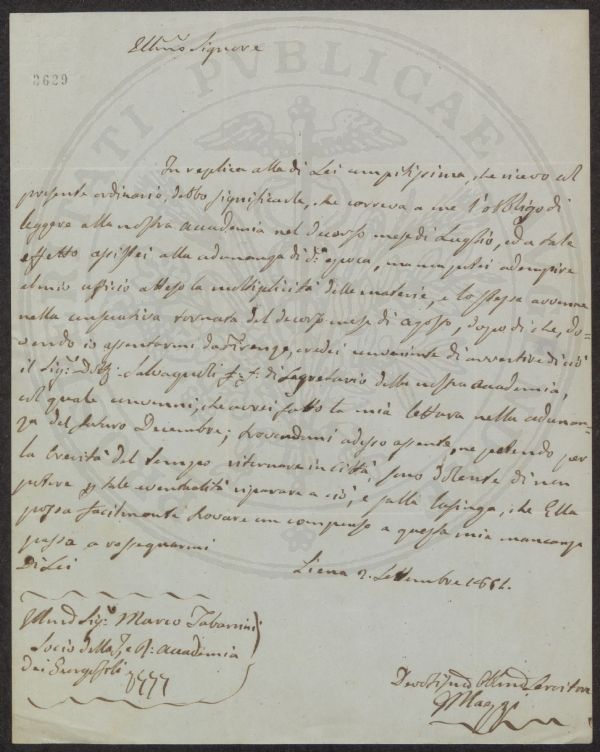 Ill.mo Signore
2629
In replica alla di Lei compitissima, che ricevo col
presente ordinario, debbo significarle, che correva a me l'obbligo di
leggere alla nostra Accademia nel decorso mese di Luglio, ed a tale
effetto assistei alla adunanza di d.a epoca, ma non potei adempire
al mio ufficio atteso la multiplicità delle materie, e lo stesso avvenne
nella consecutiva tornata del decorso mese di Agosto, dopo di che, do=
vendo io assentarmi da Firenze, credei conveniente di avvertire di ciò
il Sig.r Dott. Salvagnoli ff. di Segretario della nostra Accademia,
col quale convenni, che avrei fatto la mia lettura nella adunan=
za del futuro Decembre; trovandomi adesso assente, ne potendo per
la brevità del tempo ritornare in Città, sono dolente di non
potere p tale eventualità riparare a ciò, e folla lusinga, che Ella
possa facilmente trovare un compenso a questa mia mancanza
passo a rassegnarmi
Di Lei
Siena 2. Settembre 1851.
Sig.r Marco Tabarrini
Socio della I. e R. Accademia
dei Georgofili
Servitore